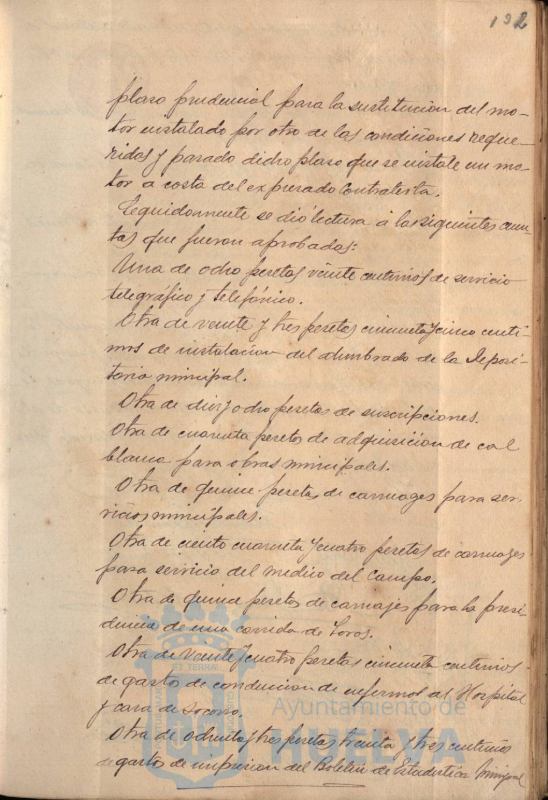 192
plaso prudencial para la sustitucion del mo-
tor instalado por otro de las condiciones reque-
ridas y pasado dicho plaso que se instale un mo-
tor a costa del expresado Contratista.
Seguidamente se dió lectura á las siguientes cuen-
tas que fueron aprobadas:
Una de ocho pesetas veinte centimos de servicio
telegráfico y telefónico.
Otra de veinte y tres pesetas cincuenta y cinco centi-
mos de instalacion del alumbrado de la Deposi-
taria municipal.
Otra de diez y ocho pesetas de suscripciones.
Otra de cuarenta pesetas de adquisicion de cal
blanca para obras municipales.
Otra de quince pesetas de carruages para ser-
vicios municipales.
Otra de ciento cuarenta y cuatro pesetas de carruages
para servicio del medico del Campo.
Otra de quince pesetas de carruajes para la presi-
dencia de una corrida de Toros.
Otra de veinte y cuatro pesetas cincuenta centimos
de gastos de conduccion de enfermos al Hospital
y casa de Socorro.
Otra de ochenta y tres pesetas treinta y tres centimos
de gastos de impresion del Boletin de Estadistica Municipal
Ayuntamiento de
HUELVA